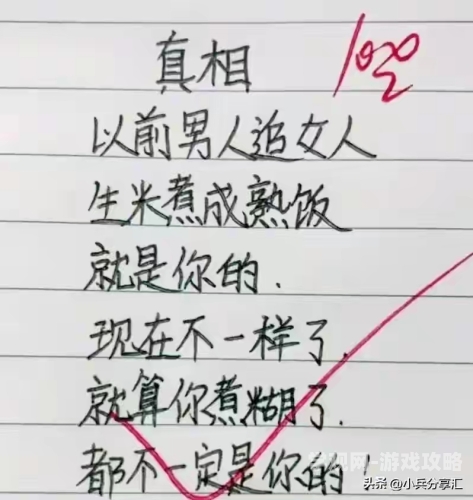 真相
100
以前男人追女人
生米煮成熟饭
就是你的.
现在不一样了.
就算你煮糊了.
都不一定是你的!
游戏攻略
头条 @小兵分享汇